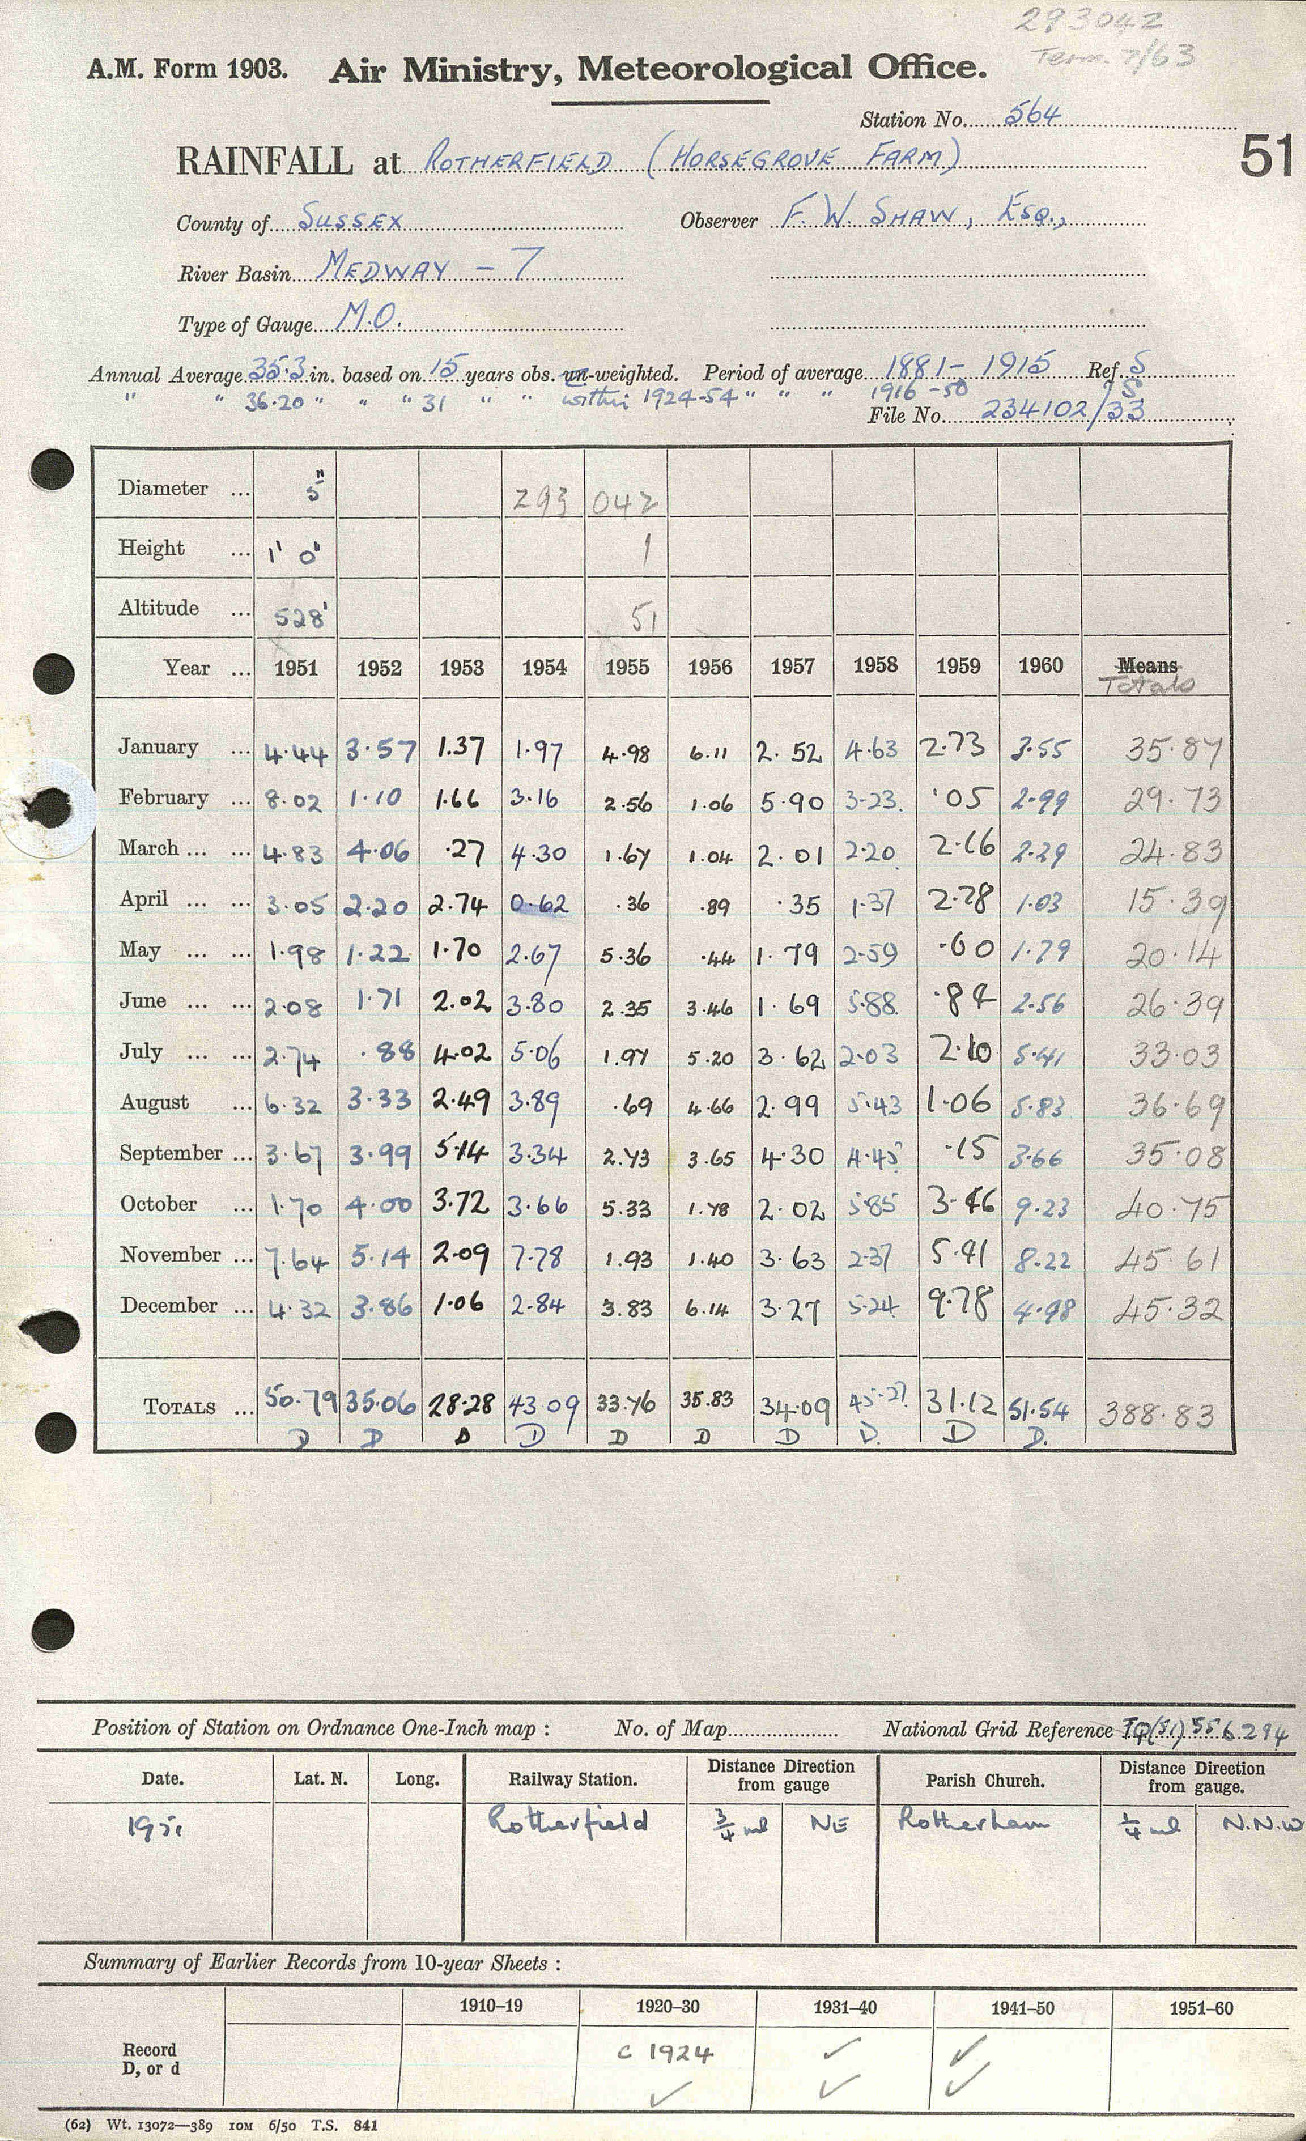 293042
Term. 7/63
A.M. Form 1903. Air Ministry, Meteorological Office.
Station No. 564
51
RAINFALL at ROTHERFIELD (HORSEGROVE FARM)
County of SUSSEX Observer F.W. SHAW, ESQ.,
River Basin MEDWAY - 7
Type of Gauge M.O.
Annual Average 35.3 in. based on 15 years obs. un-weighted. Period of average 1881-1915 Ref. S
" " 36.20 " " " 31 " " within 1924-54 " " " 1916-50 " S
File No. 234102/33
Diameter ... 5" 293 042
Height ... 1' 0" 1
Altitude ... 528' 51
Year ... 1951 1952 1953 1954 1955 1956 1957 1958 1959 1960 Means
Totals
January ... 4.44 3.57 1.37 1.97 4.98 6.11 2.52 4.63 2.73 3.55 35.87
February ... 8.02 1.10 1.66 3.16 2.56 1.06 5.90 3.23 .05 2.99 29.73
March ... ... 4.83 4.06 .27 4.30 1.67 1.04 2.01 2.20 2.16 2.29 24.83
April ... ... 3.05 2.20 2.74 0.62 .36 .89 .35 1.37 2.78 1.03 15.39
May ... ... 1.98 1.22 1.70 2.67 5.36 .44 1.79 2.59 .60 1.79 20.14
June ... ... 2.08 1.71 2.02 3.80 2.35 3.46 1.69 5.88 .84 2.56 26.39
July ... ... 2.74 .88 4.02 5.06 1.97 5.20 3.62 2.03 2.10 5.41 33.03
August ... 6.32 3.33 2.49 3.89 .69 4.66 2.99 5.43 1.06 5.83 36.69
September ... 3.67 3.99 5.14 3.34 2.73 3.65 4.30 4.45 .15 3.66 35.08
October ... 1.70 4.00 3.72 3.66 5.33 1.78 2.02 5.85 3.46 9.23 40.75
November ... 7.64 5.14 2.09 7.78 1.93 1.40 3.63 2.37 5.41 8.22 45.61
December ... 4.32 3.86 1.06 2.84 3.83 6.14 3.27 5.24 9.78 4.98 45.32
TOTALS ... 50.79 35.06 28.28 43 09 33.76 35.83 34.09 45.27 31.12 51.54 388.83
D D D D D D D D. D D.
Position of Station on Ordnance One-Inch map : No. of Map National Grid Reference TQ(51) 556294
Date. Lat. N. Long. Railway Station. Distance Direction from gauge Parish Church. Distance Direction from gauge.
1951 Rotherfield 3/4 ml NE Rotherham 1/4 ml N.N.W
Summary of Earlier Records from 10-year Sheets :
1910–19 1920–30 1931–40 1941–50 1951–60
Record
D, or d
c 1924 ✓ ✓
✓ ✓ ✓
(62) Wt. 13072—389 10M 6/50 T.S. 841